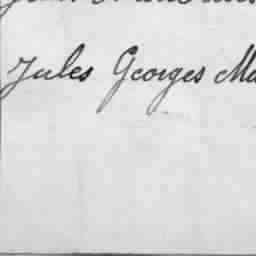 Jules Georges Ma